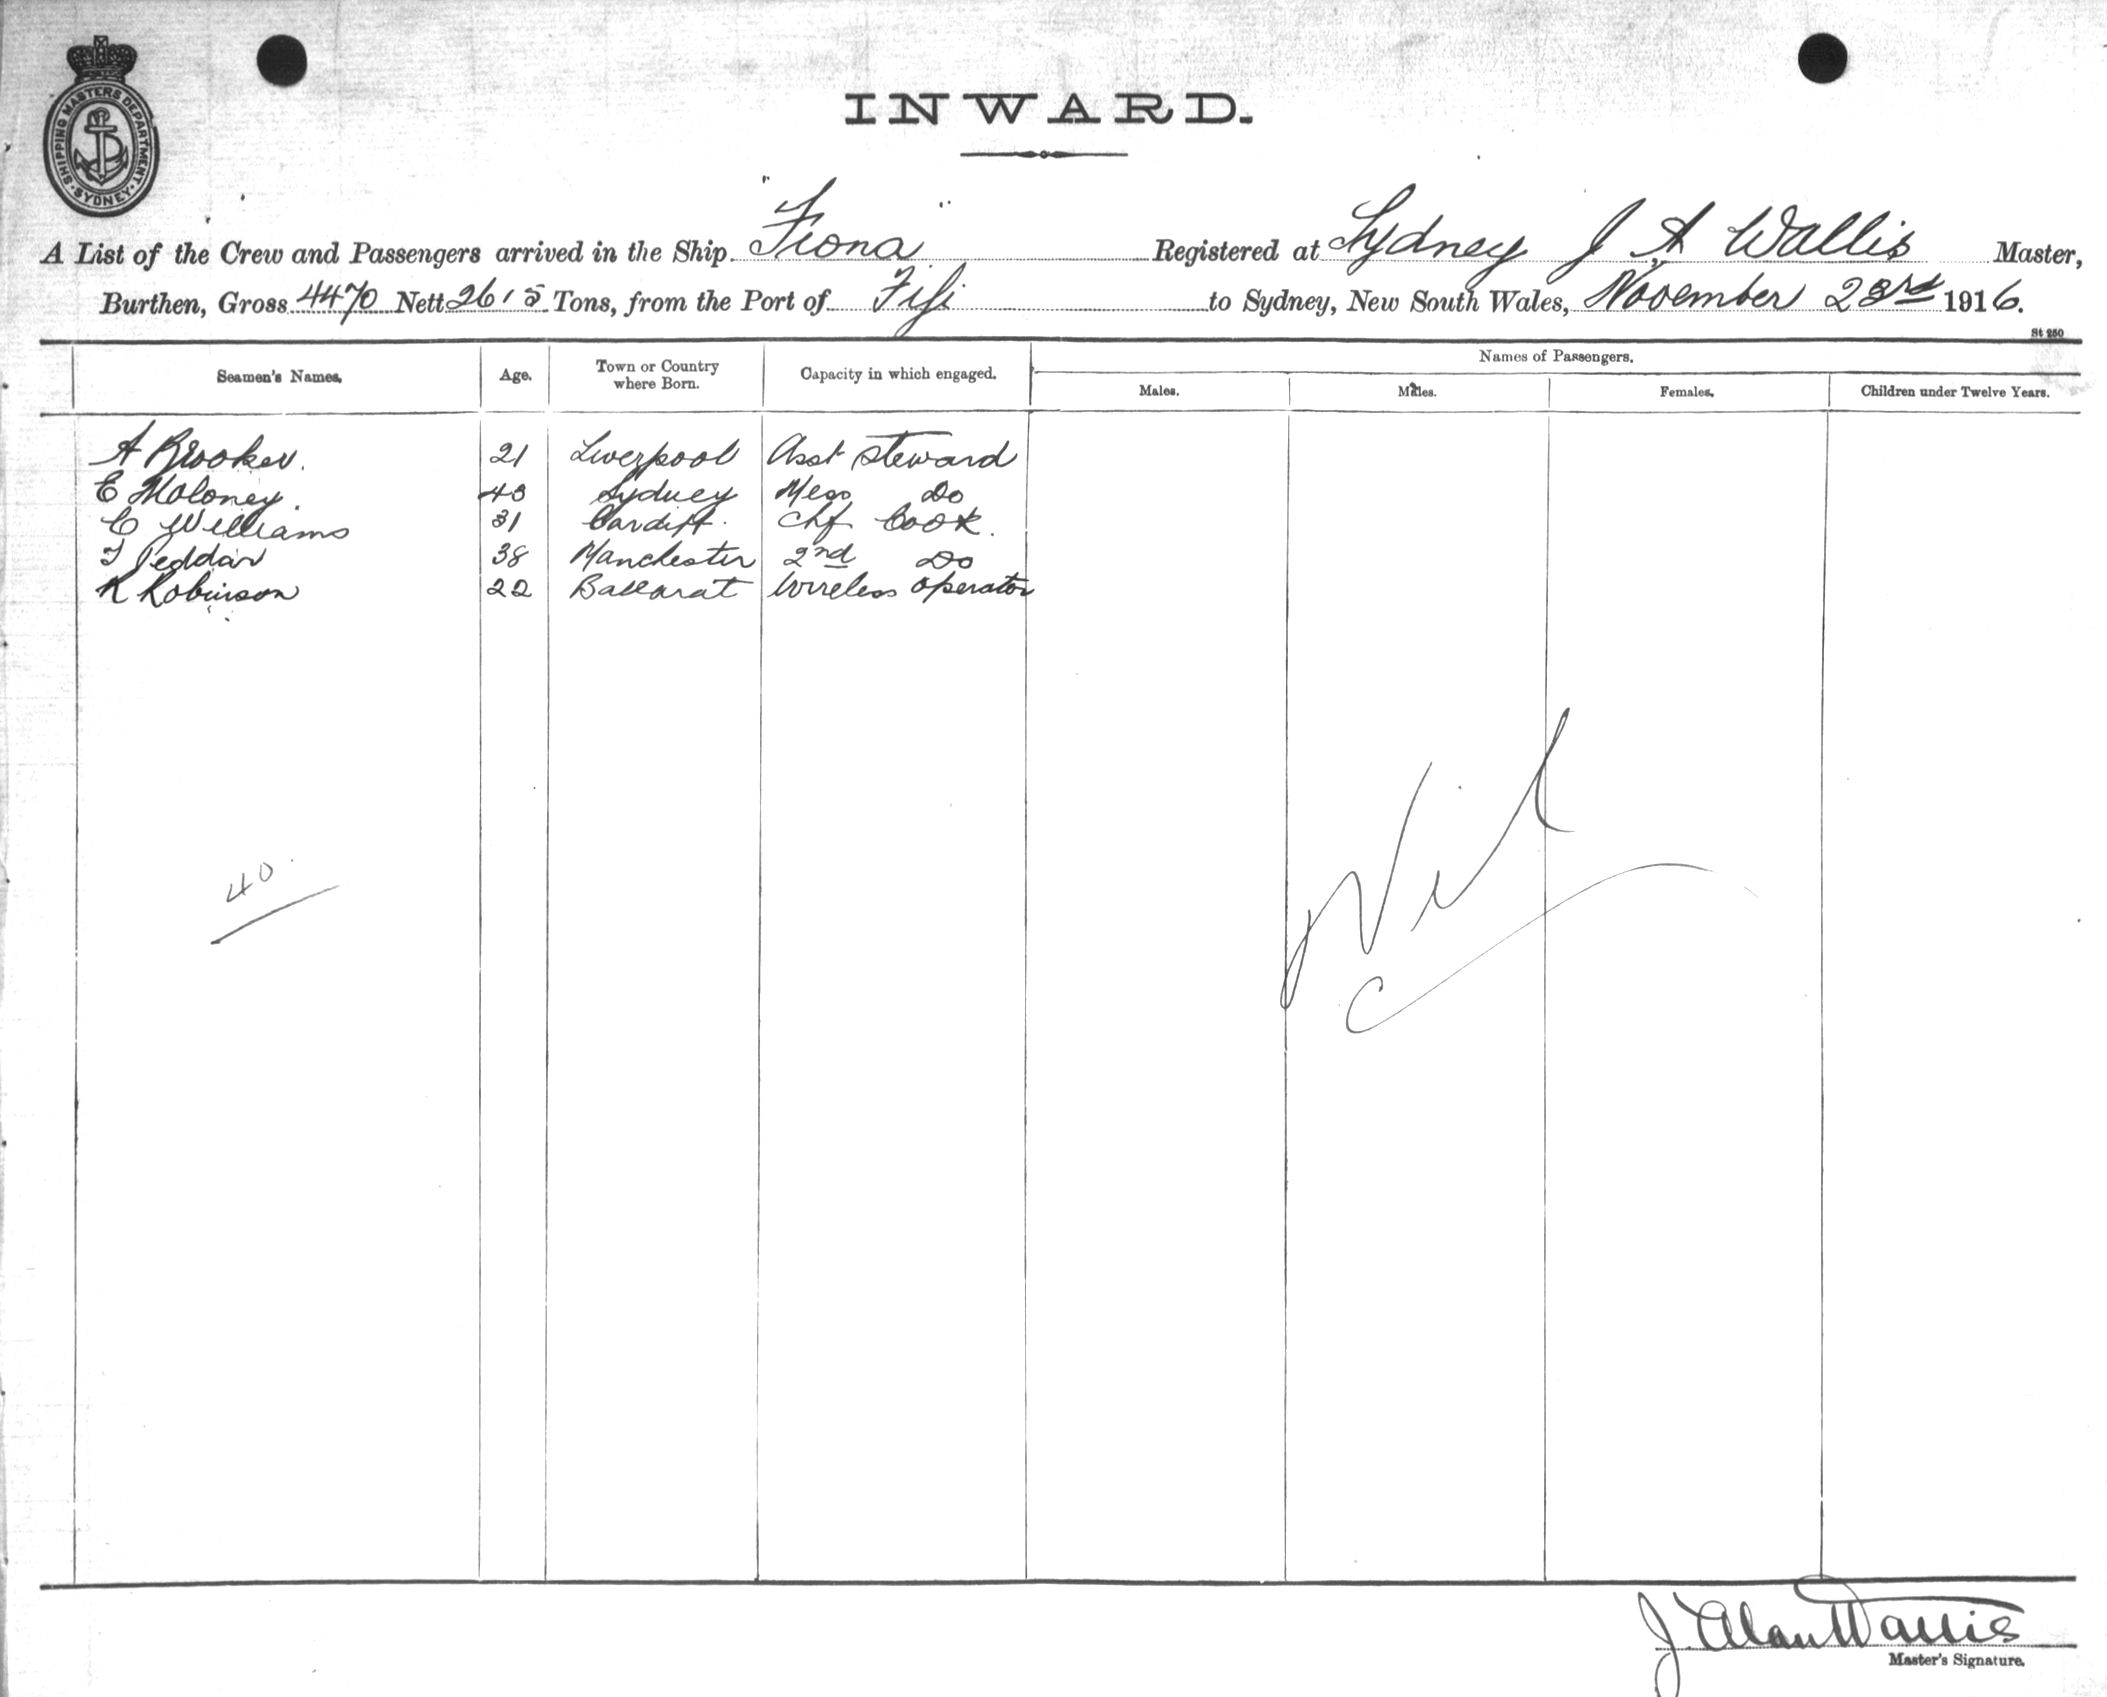 SHIPPING MASTERS DEPARTMENT · SYDNEY ·
INWARD.
A List of the Crew and Passengers arrived in the Ship "Fiona" Registered at Sydney J A Wallis Master,
Burthen, Gross 4470 Nett 2615 Tons, from the Port of Fiji to Sydney, New South Wales, November 23rd 1916.
St 250
Seamen's Names. Age. Town or Country where Born. Capacity in which engaged. Names of Passengers.
Males. Males. Females. Children under Twelve Years.
A Brooker. 21 Liverpool Asst Steward
E Moloney. 43 Sydney Mess Do
C Williams 31 Cardiff. Chf Cook.
T Peddar 38 Manchester 2nd Do
R Robinson 22 Ballarat Wireless Operator
Nil
40
J. Alan Wallis
Master's Signature.